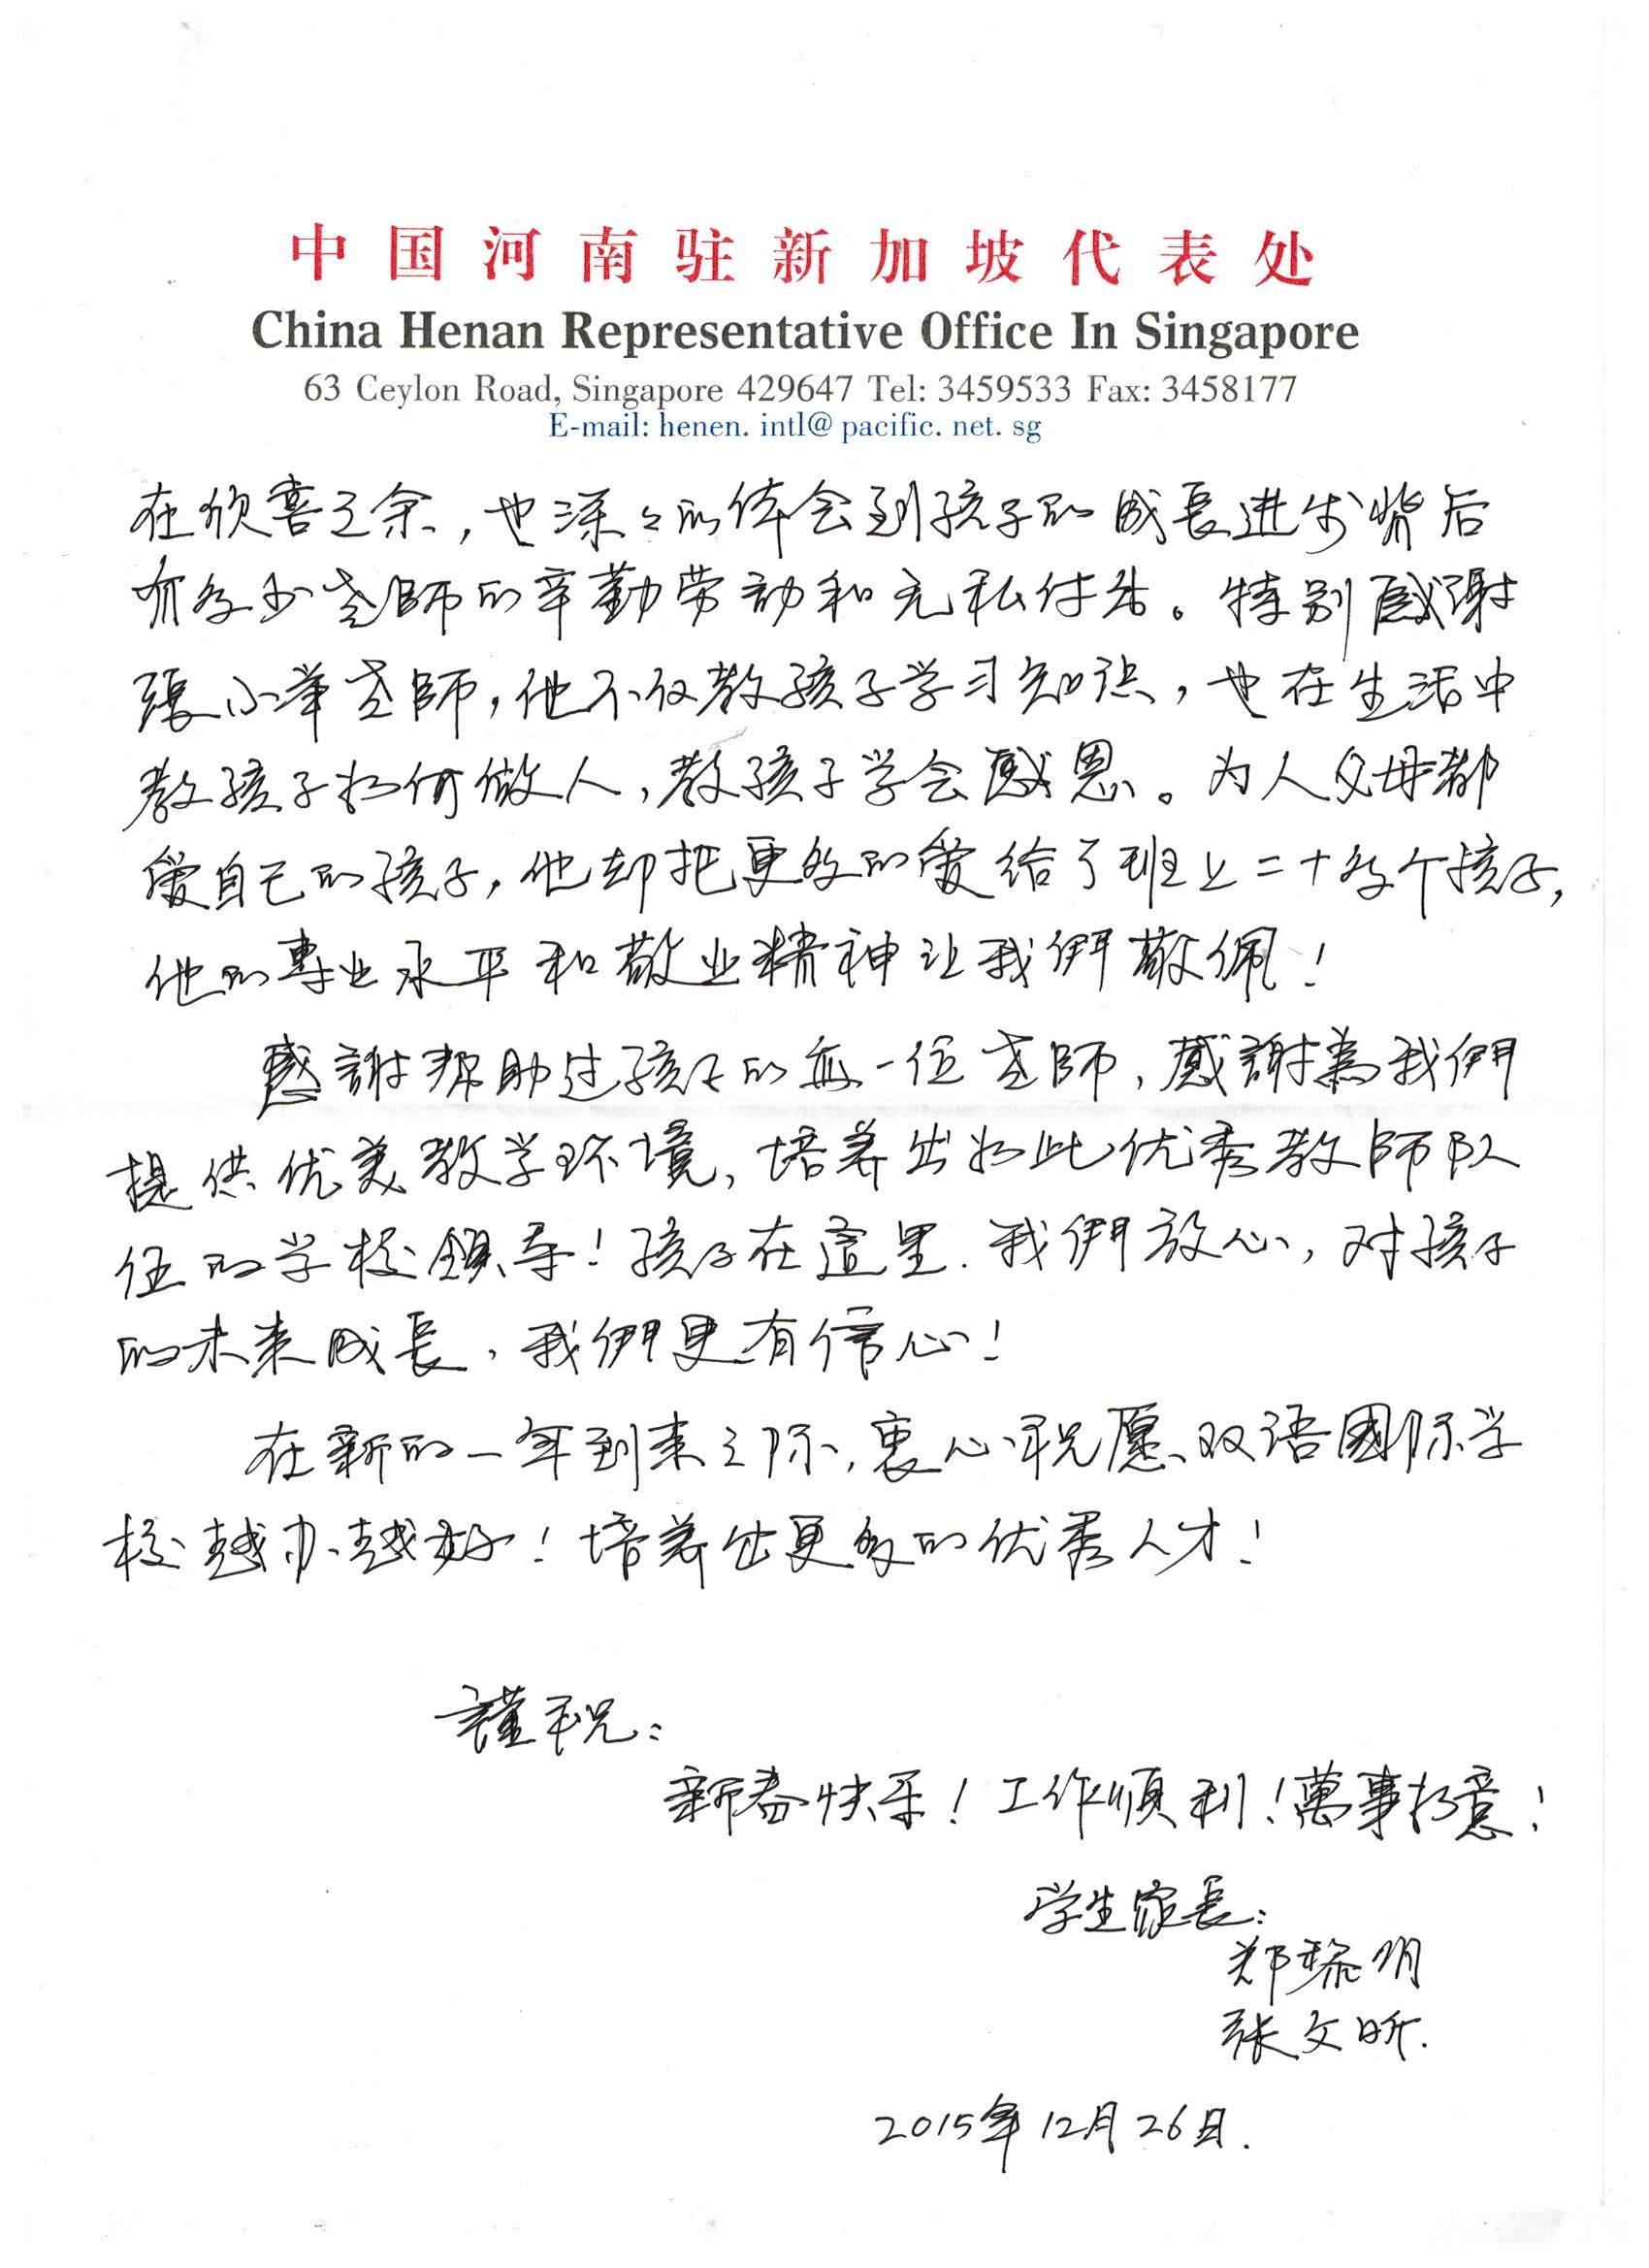 中国河南驻新加坡代表处
China Henan Representative Office In Singapore
63 Ceylon Road, Singapore 429647 Tel: 3459533 Fax: 3458177
E-mail: henen. intl@ pacific. net. sg
在欣喜之余，也深々的体会到孩子的成長进步背后
有多少老師的辛勤劳动和无私付出。特别感謝
張小举老師，他不仅教孩子学习知识，也在生活中
教孩子如何做人，教孩子学会感恩。为人父母都
爱自己的孩子，他却把更多的爱给了班上二十多个孩子，
他的專业水平和敬业精神让我們敬佩！
感謝帮助过孩子的每一位老師，感謝為我們
提供优美教学环境，培养出如此优秀教師队
伍的学校領导！孩子在這里．我們放心，对孩子
的未来成長，我們更有信心！
在新的一年到来之际，衷心祝愿双语國际学
校越办越好！培养出更多的优秀人才！
謹祝：
新春快乐！工作順利！萬事如意！
学生家長：
郑黎明
张文昕．
2015年12月26日．